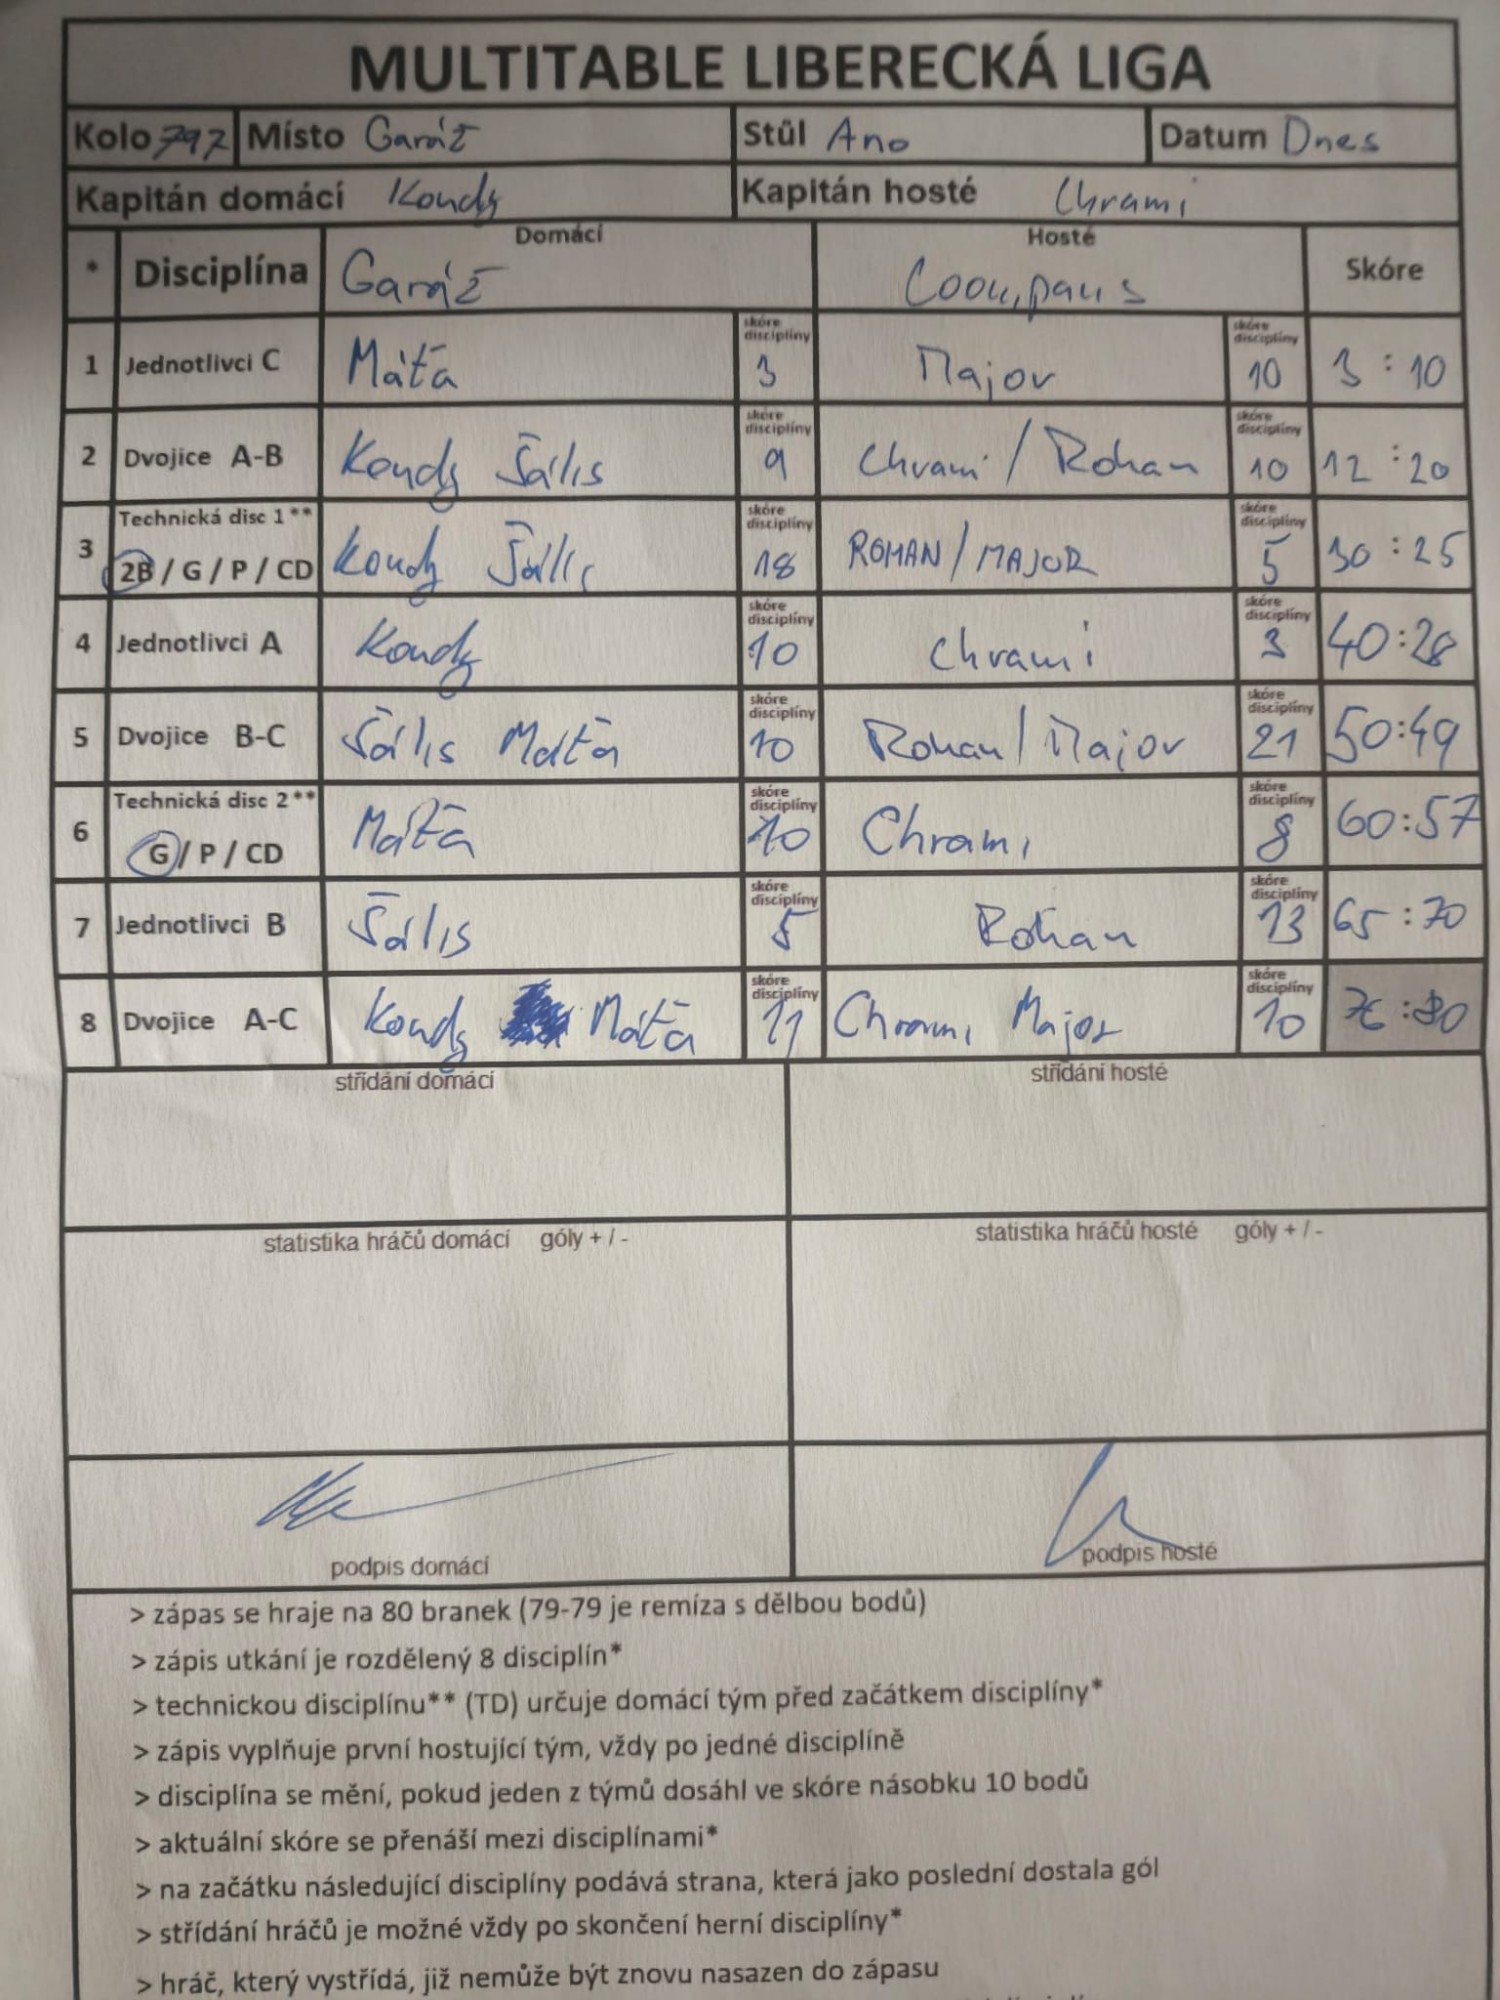 MULTITABLE LIBERECKÁ LIGA
Kolo 797 Místo Garáž Stůl Ano Datum Dnes
Kapitán domácí Kondy Kapitán hosté Chrami
* Disciplína Domácí Garáž Hosté Skóre
1 Jednotlivci C Máťa skóre disciplíny 3 Major skóre disciplíny 10 3 : 10
2 Dvojice A-B Kondy Šális skóre disciplíny 9 Chrami / Rohan skóre disciplíny 10 12 : 20
3 Technická disc 1** 2B / G / P / CD Kondy Šális skóre disciplíny 18 ROHAN / MAJOR skóre disciplíny 5 30 : 25
4 Jednotlivci A Kondy skóre disciplíny 10 Chrami skóre disciplíny 3 40:28
5 Dvojice B-C Šális Máťa skóre disciplíny 10 Rohan / Major skóre disciplíny 21 50:49
6 Technická disc 2** G / P / CD Máťa skóre disciplíny 10 Chrami skóre disciplíny 8 60:57
7 Jednotlivci B Šális skóre disciplíny 5 Rohan skóre disciplíny 13 65 : 70
8 Dvojice A-C Kondy Máťa skóre disciplíny 11 Chrami Major skóre disciplíny 10 76 : 80
střídání domácí střídání hosté
statistika hráčů domácí góly + / - statistika hráčů hosté góly + / -
podpis domácí podpis hosté
> zápas se hraje na 80 branek (79-79 je remíza s dělbou bodů)
> zápis utkání je rozdělený 8 disciplín*
> technickou disciplínu** (TD) určuje domácí tým před začátkem disciplíny*
> zápis vyplňuje první hostující tým, vždy po jedné disciplíně
> disciplína se mění, pokud jeden z týmů dosáhl ve skóre násobku 10 bodů
> aktuální skóre se přenáší mezi disciplínami*
> na začátku následující disciplíny podává strana, která jako poslední dostala gól
> střídání hráčů je možné vždy po skončení herní disciplíny*
> hráč, který vystřídá, již nemůže být znovu nasazen do zápasu